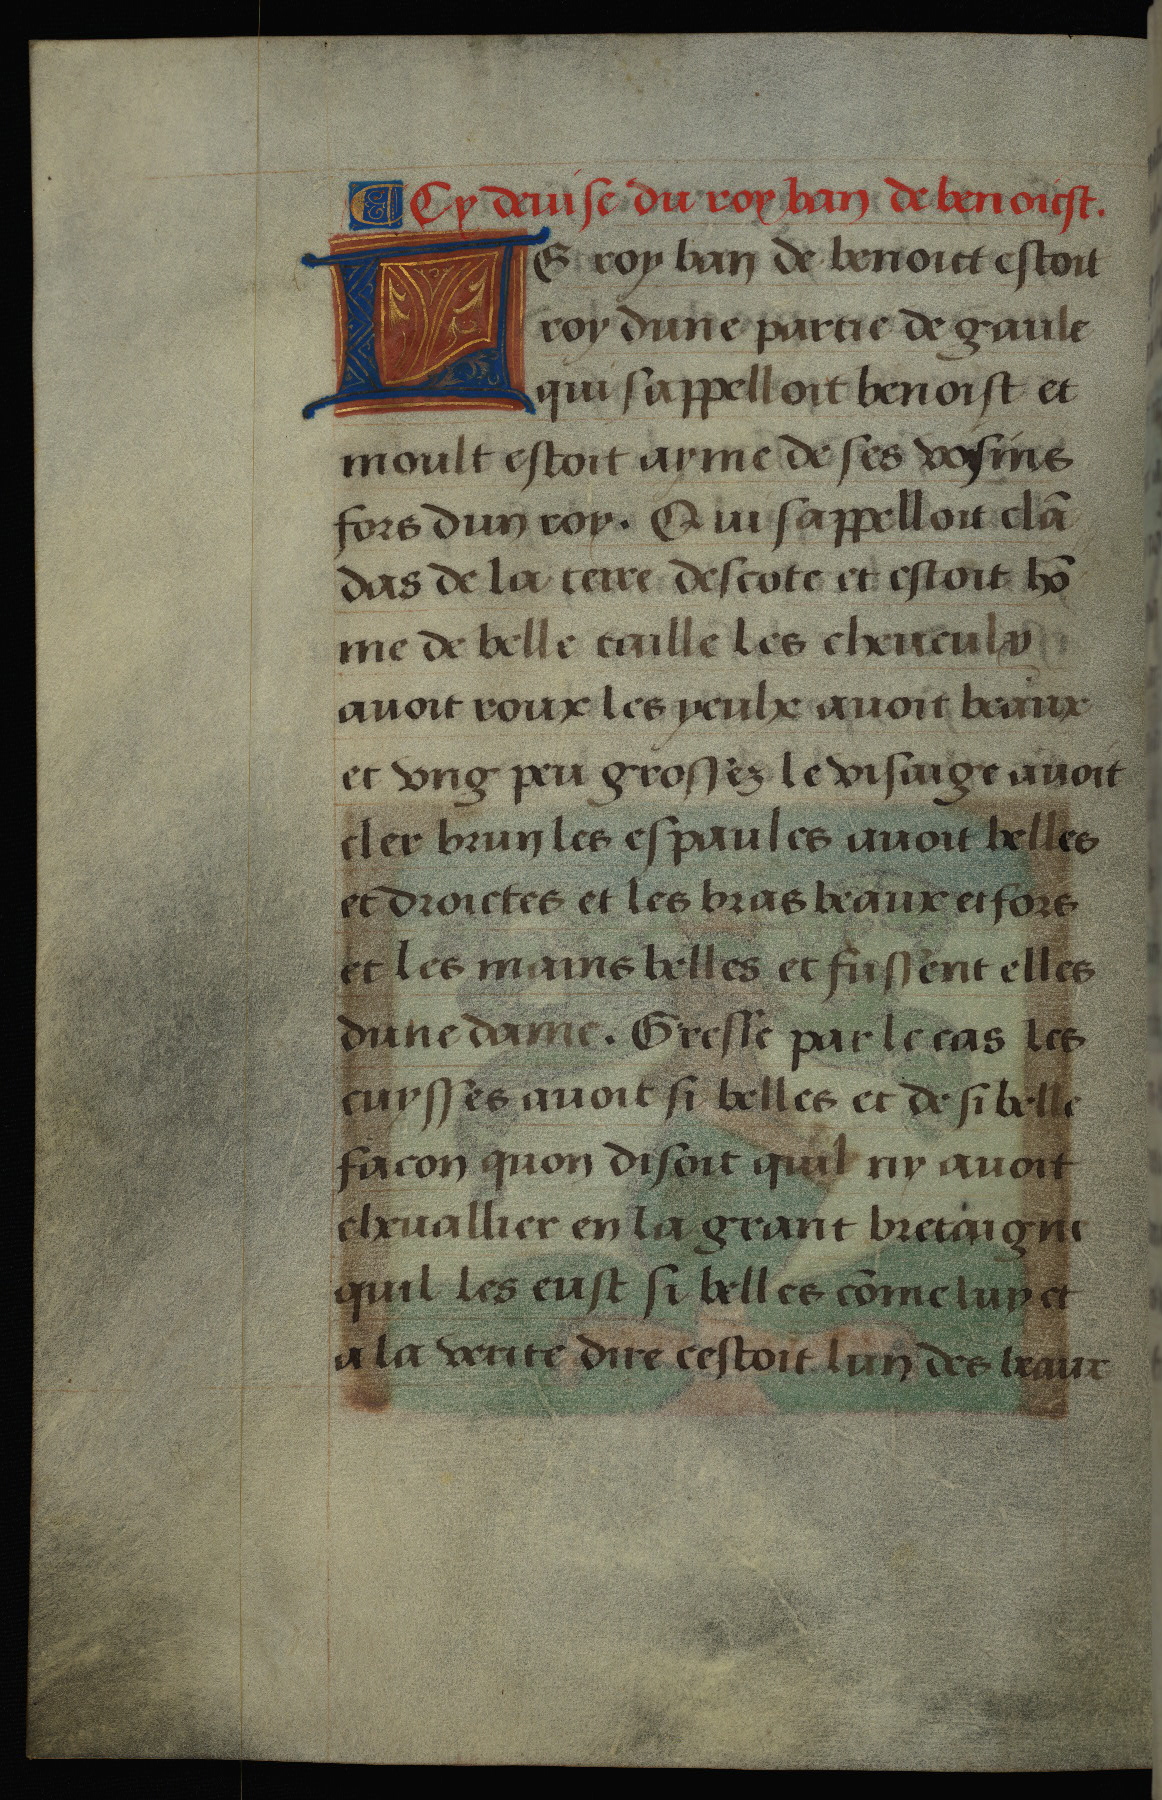 Cy deuise du roy ban de benoicst.
LE roy ban de benoict estoit
roy dune partie de gaule
qui sappelloit benoist et
moult estoit ayme de ses voysins
fors dun roy. Qui sappelloit clā
das de la terre descote et estoit hō
me de belle taille les cheueulx
auoit roux les yeulx auoit beaux
et vng peu grossez le visaige auoit
cler brun les espaules auoit belles
et droictes et les bras beaux et fors
et les mains belles et fussent elles
dune dame. Gresse par le cas les
cuysses auoit si belles et de si belle
facon quon disoit quil ny auoit
cheuallier en la grant bretaigne
quil les eust si belles cōme luy et
a la verite dire cestoit lun des beaux